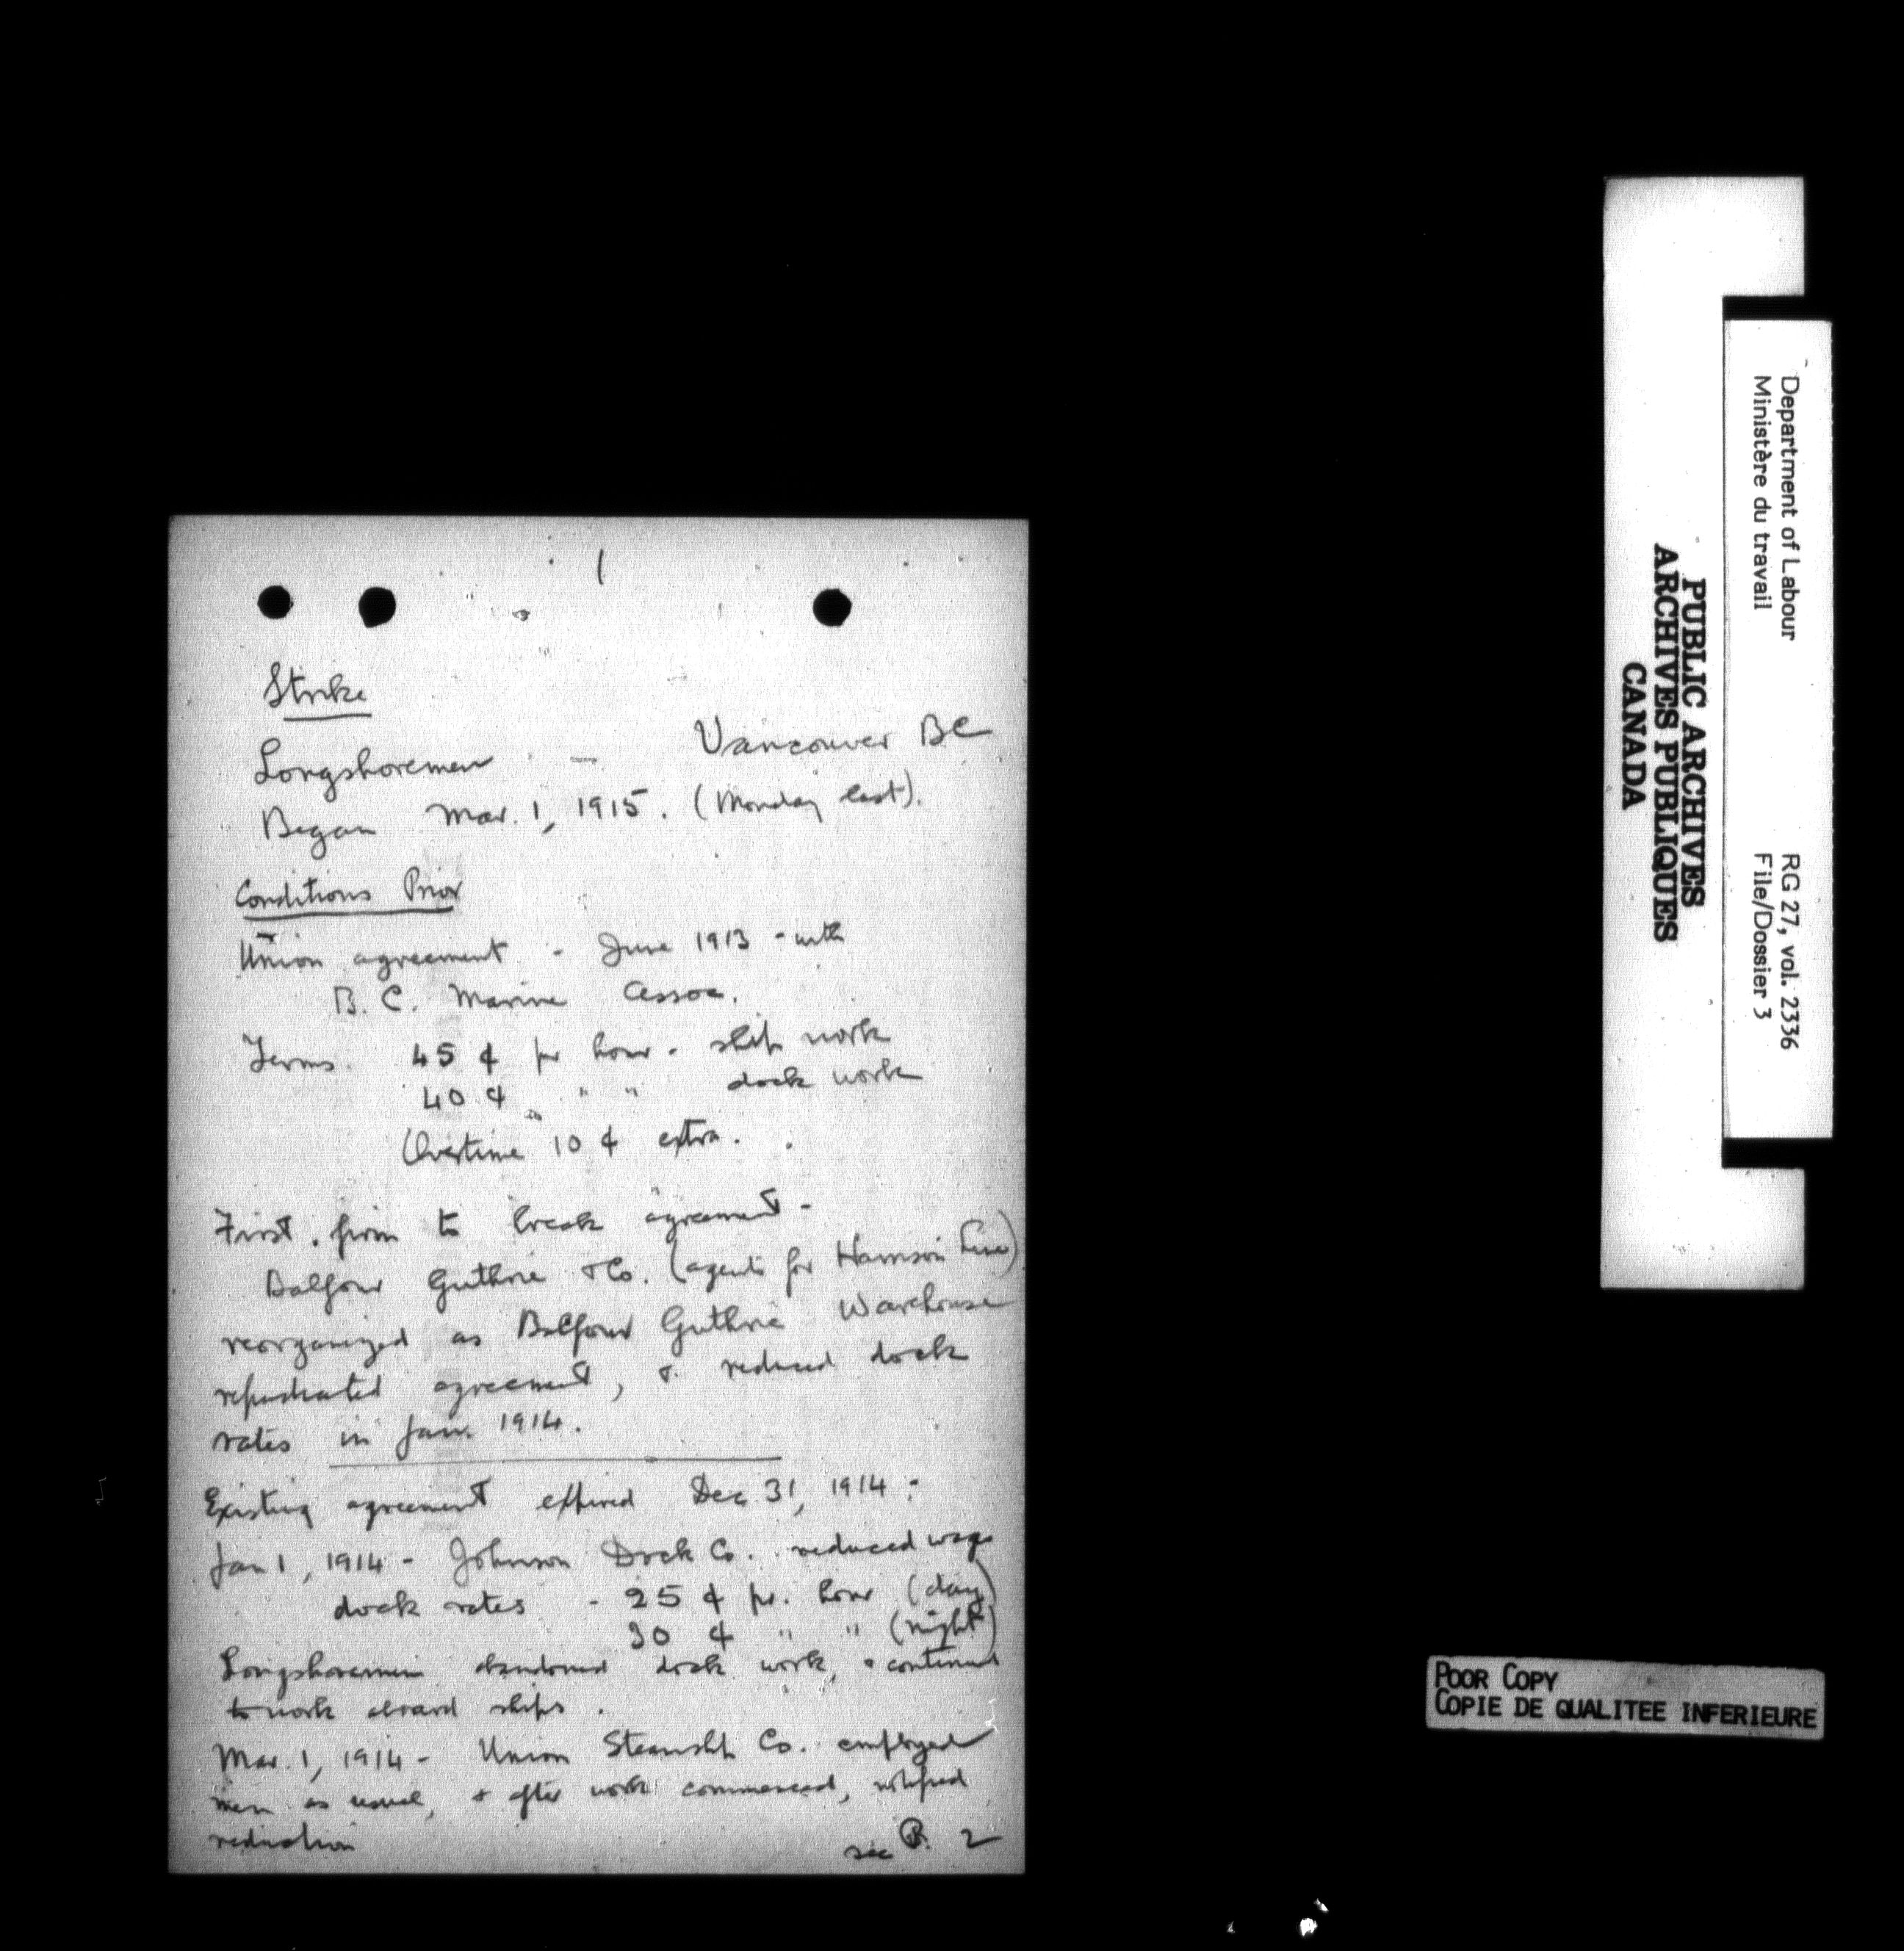 1
Strike
Longshoremen - Vancouver BC
Began Mar. 1, 1915. (Monday last).
Conditions Prior
Union agreement - June 1913 - with
B. C. Marine Assoc.
Terms. 45 ¢ pr hour - ship work
40 ¢ " " dock work
Overtime 10 ¢ extra.
First firm to break agreement -
Balfour Guthrie & Co. (agents for Harrison Line)
reorganized as Balfour Guthrie Warehouse
repudiated agreement, & reduced dock
rates in Jan. 1914.
Existing agreement expired Dec 31, 1914;
Jan 1, 1914 - Johnson Dock Co. reduced wage
dock rates - 25 ¢ pr. hour (day)
30 ¢ " " (night)
Longshoremen abandoned dock work, & continued
to work aboard ships.
Mar. 1, 1914 - Union Steamsh Co. employed
men as usual, & after work commenced, notified
reduction
see P. 2
Department of Labour
Ministère du travail
RG 27, vol. 2336
File/Dossier 3
PUBLIC ARCHIVES
ARCHIVES PUBLIQUES
CANADA
POOR COPY
COPIE DE QUALITEE INFERIEURE